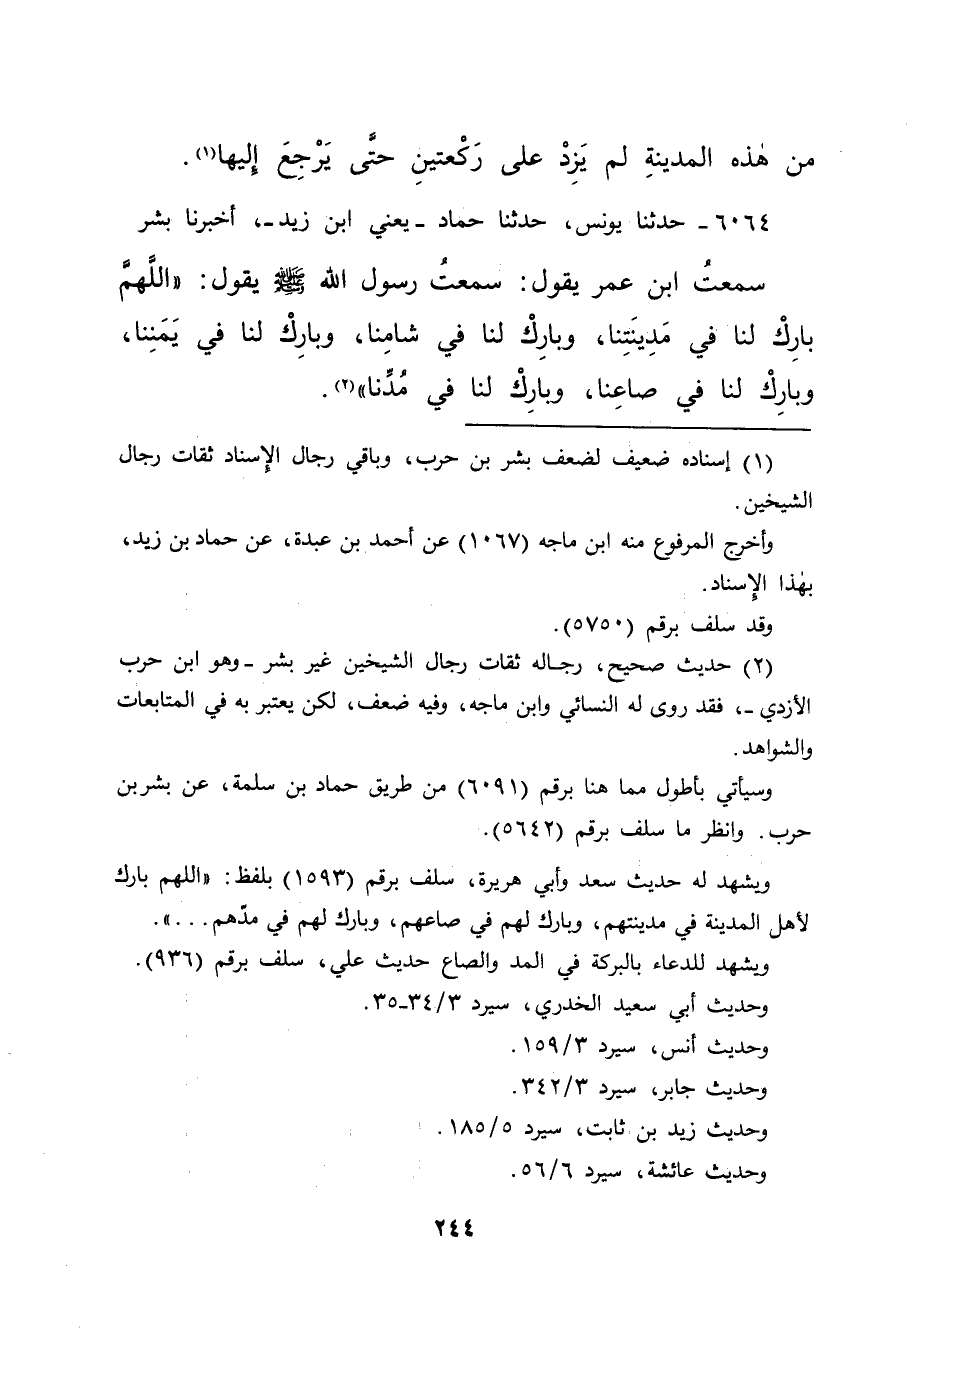 من هٰذه المدينةِ لم يَزِدْ على رَكْعتينِ حتَّى يَرْجِعَ إِليها(١).
٦٠٦٤ ـ حدثنا يونس، حدثنا حماد ـ يعني ابن زيد ـ، أخبرنا بشر
سمعتُ ابن عمر يقول: سمعتُ رسول الله ﷺ يقول: «اللَّهمَّ
بارِكْ لنا في مَدِينَتِنا، وبارِكْ لنا في شامِنا، وبارِكْ لنا في يَمَنِنا،
وبارِكْ لنا في صاعِنا، وبارِكْ لنا في مُدِّنا»(٢).
(١) إسناده ضعيف لضعف بشر بن حرب، وباقي رجال الإِسناد ثقات رجال
الشيخين.
وأخرج المرفوع منه ابن ماجه (١٠٦٧) عن أحمد بن عبدة، عن حماد بن زيد،
بهٰذا الإِسناد.
وقد سلف برقم (٥٧٥٠).
(٢) حديث صحيح، رجاله ثقات رجال الشيخين غير بشر ـ وهو ابن حرب
الأزدي ـ، فقد روى له النسائي وابن ماجه، وفيه ضعف، لكن يعتبر به في المتابعات
والشواهد.
وسيأتي بأطول مما هنا برقم (٦٠٩١) من طريق حماد بن سلمة، عن بشر بن
حرب. وانظر ما سلف برقم (٥٦٤٢).
ويشهد له حديث سعد وأبي هريرة، سلف برقم (١٥٩٣) بلفظ: «اللهم بارك
لأهل المدينة في مدينتهم، وبارك لهم في صاعهم، وبارك لهم في مدّهم...».
ويشهد للدعاء بالبركة في المد والصاع حديث علي، سلف برقم (٩٣٦).
وحديث أبي سعيد الخدري، سيرد ٣/٣٤ـ٣٥.
وحديث أنس، سيرد ٣/١٥٩.
وحديث جابر، سيرد ٣/٣٤٢.
وحديث زيد بن ثابت، سيرد ٥/١٨٥.
وحديث عائشة، سيرد ٦/٥٦.
٢٤٤